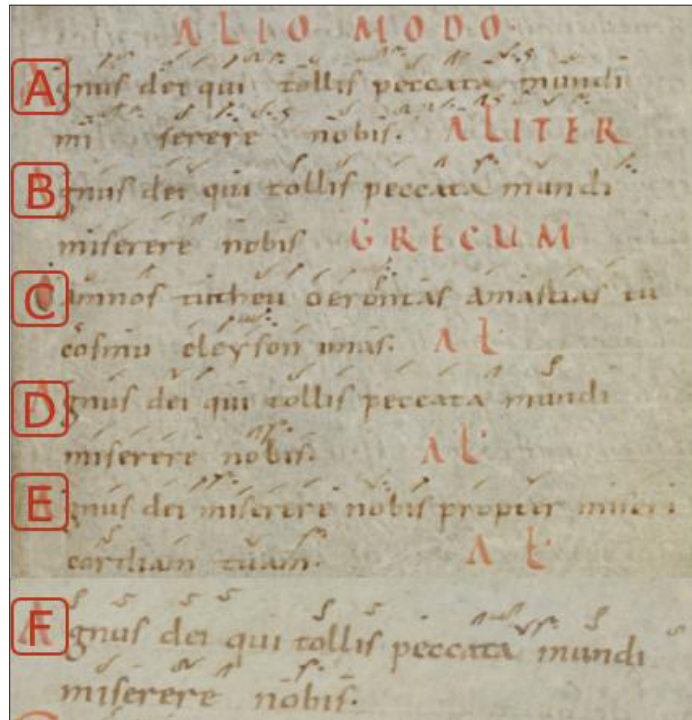 ALIO MODO
Agnus dei qui tollis peccata mundi
mi serere nobis. ALITER
Bgnus dei qui tollis peccata mundi
miserere nobis GRECUM
C amnos tutheu oerontas amastias tu
cosmu eleyson imas. AL
Dgnus dei qui tollis peccata mundi
miserere nobis. AL
Egnus dei miserere nobis propter miseri
cordiam tuam. AL
Fgnus dei qui tollis peccata mundi
miserere nobis.